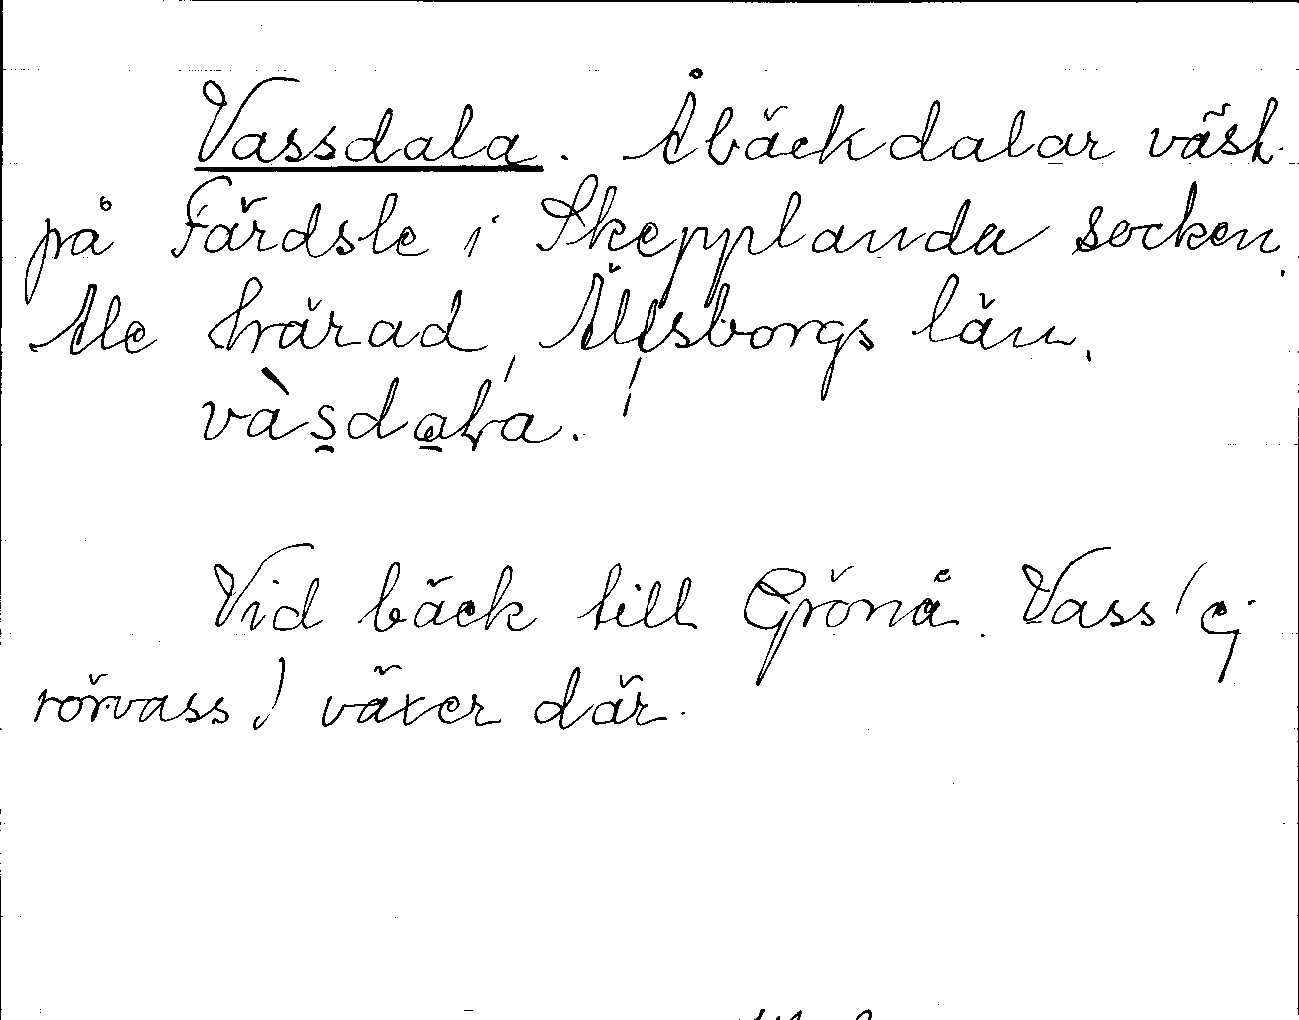 Vassdala. Åbäckdalar väst
på Färdsle i Skepplanda socken,
Ale härad, Älvsborgs län.
vàsdaɫa.
Vid bäck till Grönå. Vass (ej
rörvass) växer där.